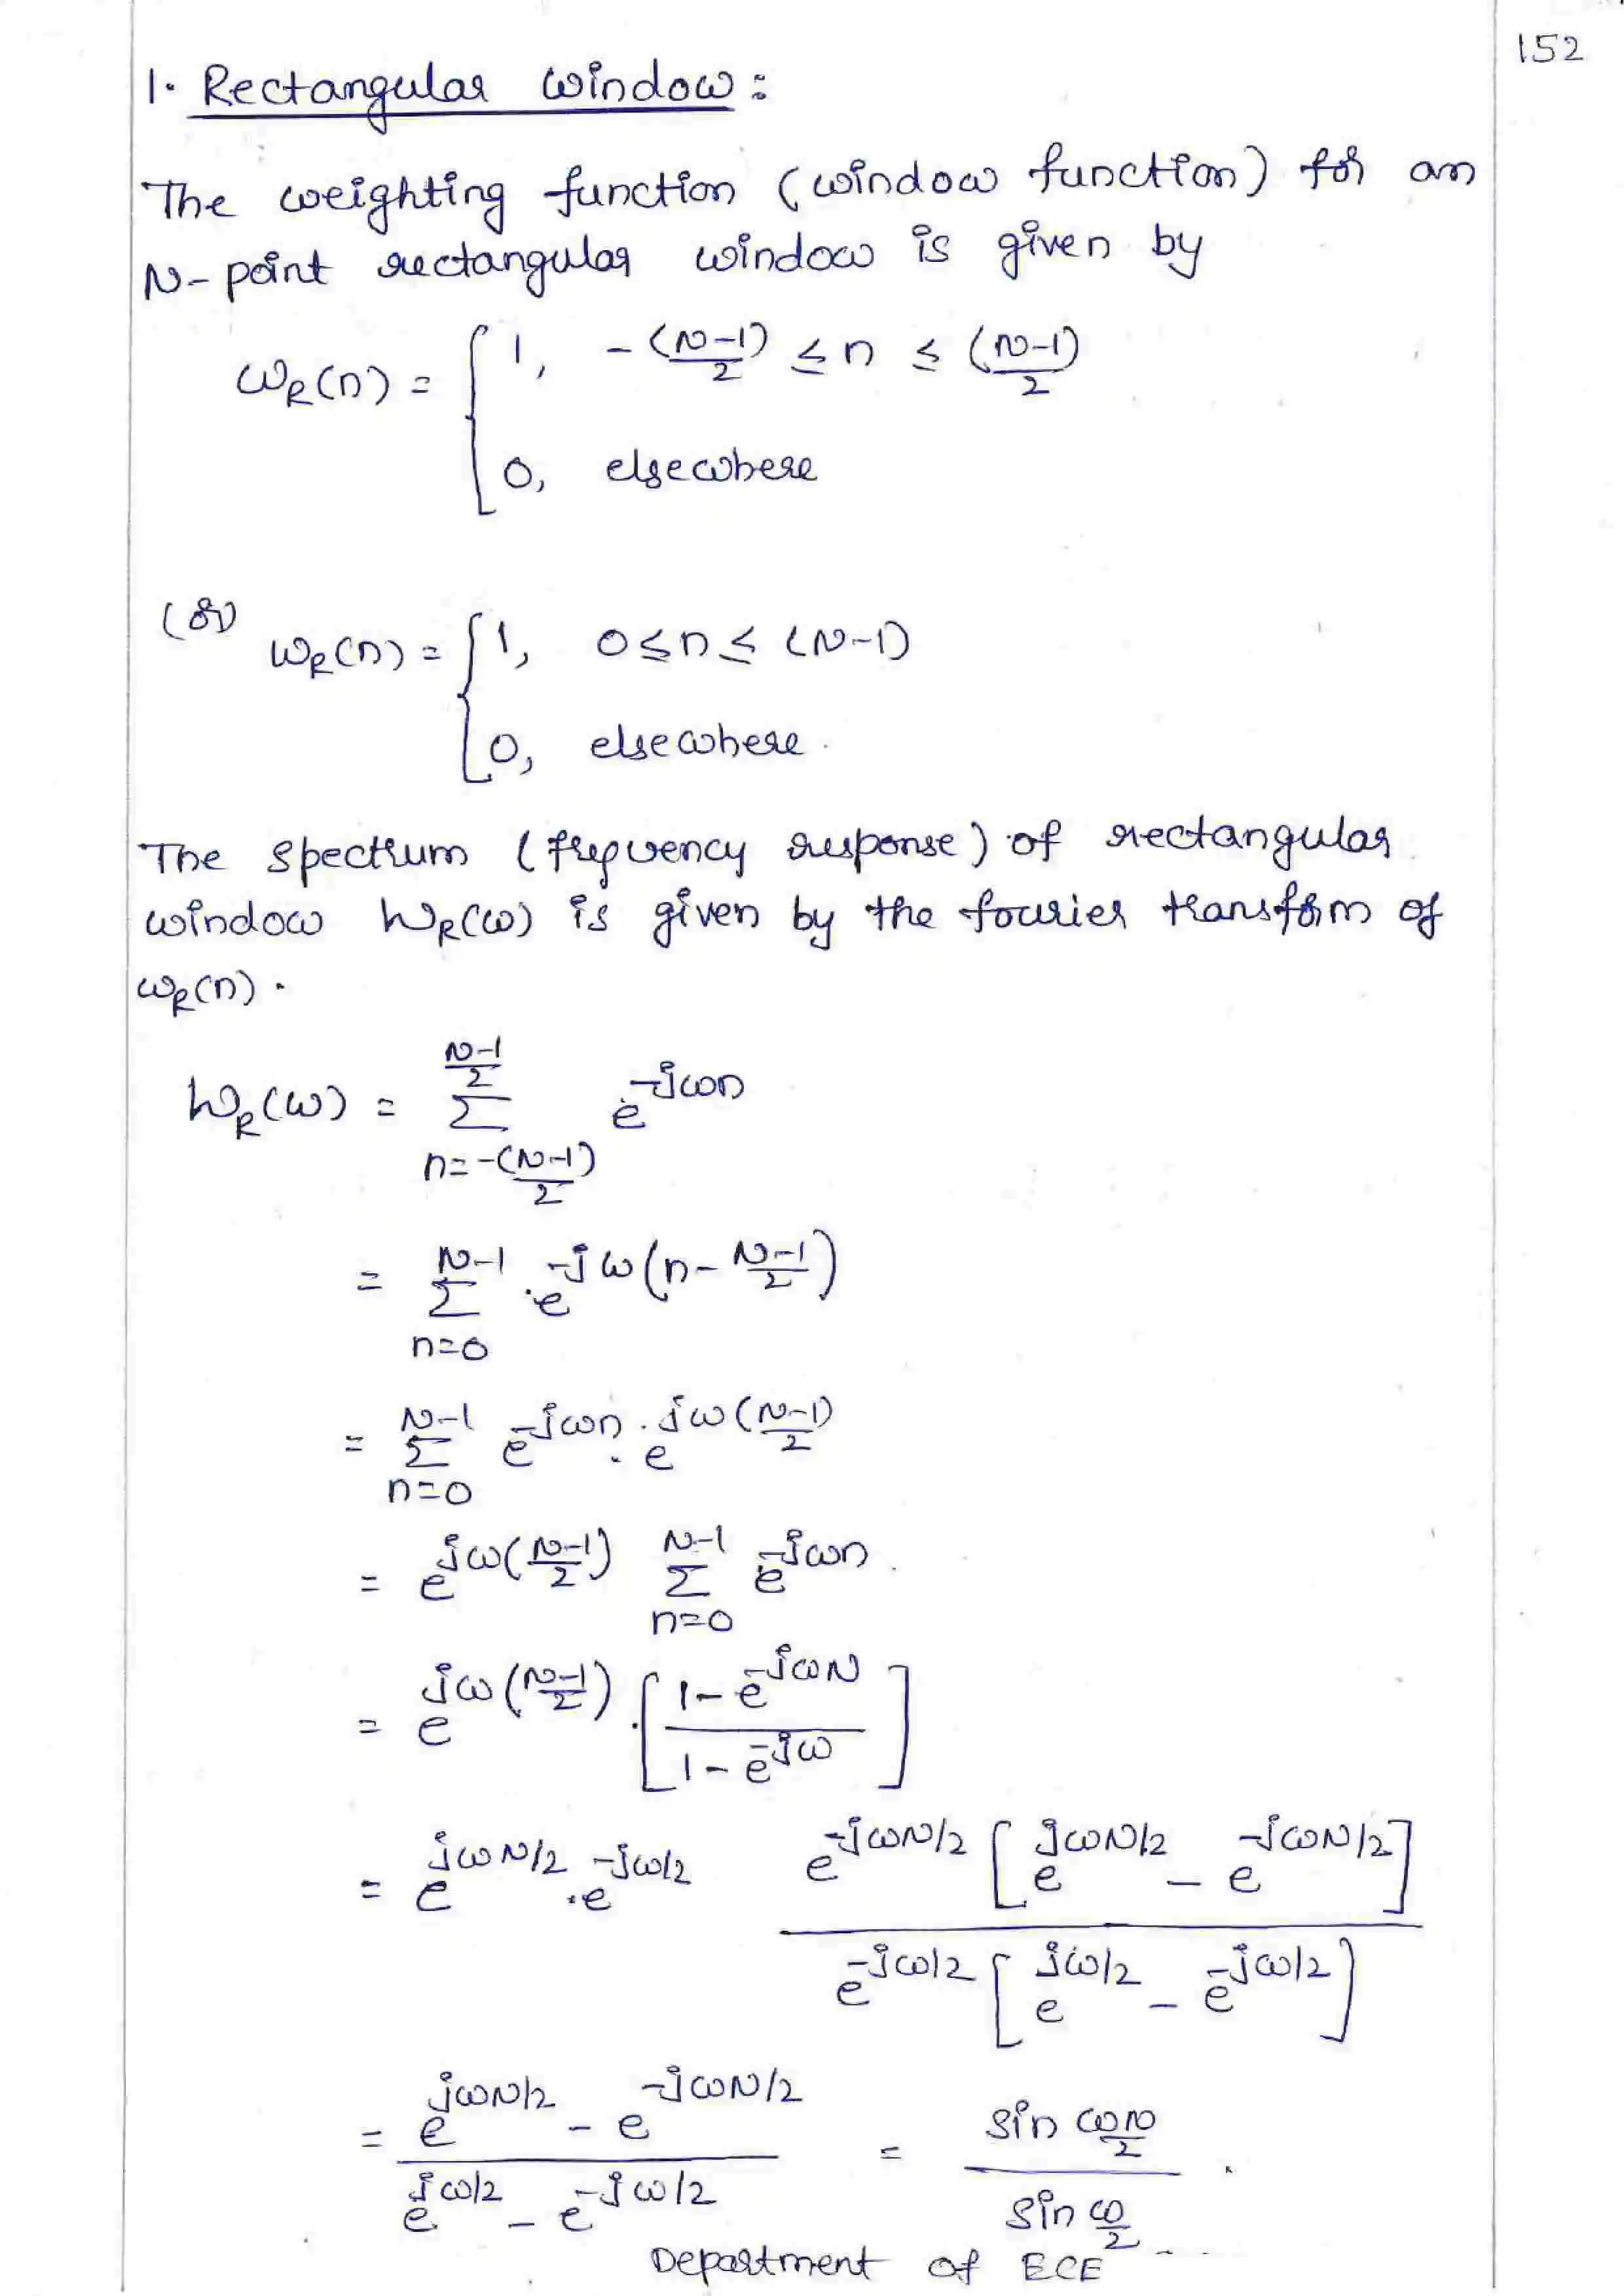 152
1. Rectangular window:
The weighting function (window function) for an
N-point rectangular window is given by
ω_R(n) = { 1, -(N-1)/2 ≤ n ≤ (N-1)/2
0, elsewhere
(or) ω_R(n) = { 1, 0 ≤ n ≤ (N-1)
0, elsewhere.
The spectrum (frequency response) of rectangular
window W_R(ω) is given by the fourier transform of
ω_R(n).
W_R(ω) = Σ_{n=-(N-1)/2}^{(N-1)/2} e^{-jωn}
= Σ_{n=0}^{N-1} e^{-jω(n-(N-1)/2)}
= Σ_{n=0}^{N-1} e^{-jωn} . e^{jω(N-1)/2}
= e^{jω(N-1)/2} Σ_{n=0}^{N-1} e^{-jωn}
= e^{jω(N-1)/2} . [ (1-e^{-jωN}) / (1-e^{-jω}) ]
= e^{jωN/2} . e^{-jω/2} e^{-jωN/2} [ e^{jωN/2} - e^{-jωN/2} ] / e^{-jω/2} [ e^{jω/2} - e^{-jω/2} ]
= (e^{jωN/2} - e^{-jωN/2}) / (e^{jω/2} - e^{-jω/2}) = sin ωN/2 / sin ω/2 .
Department of ECE